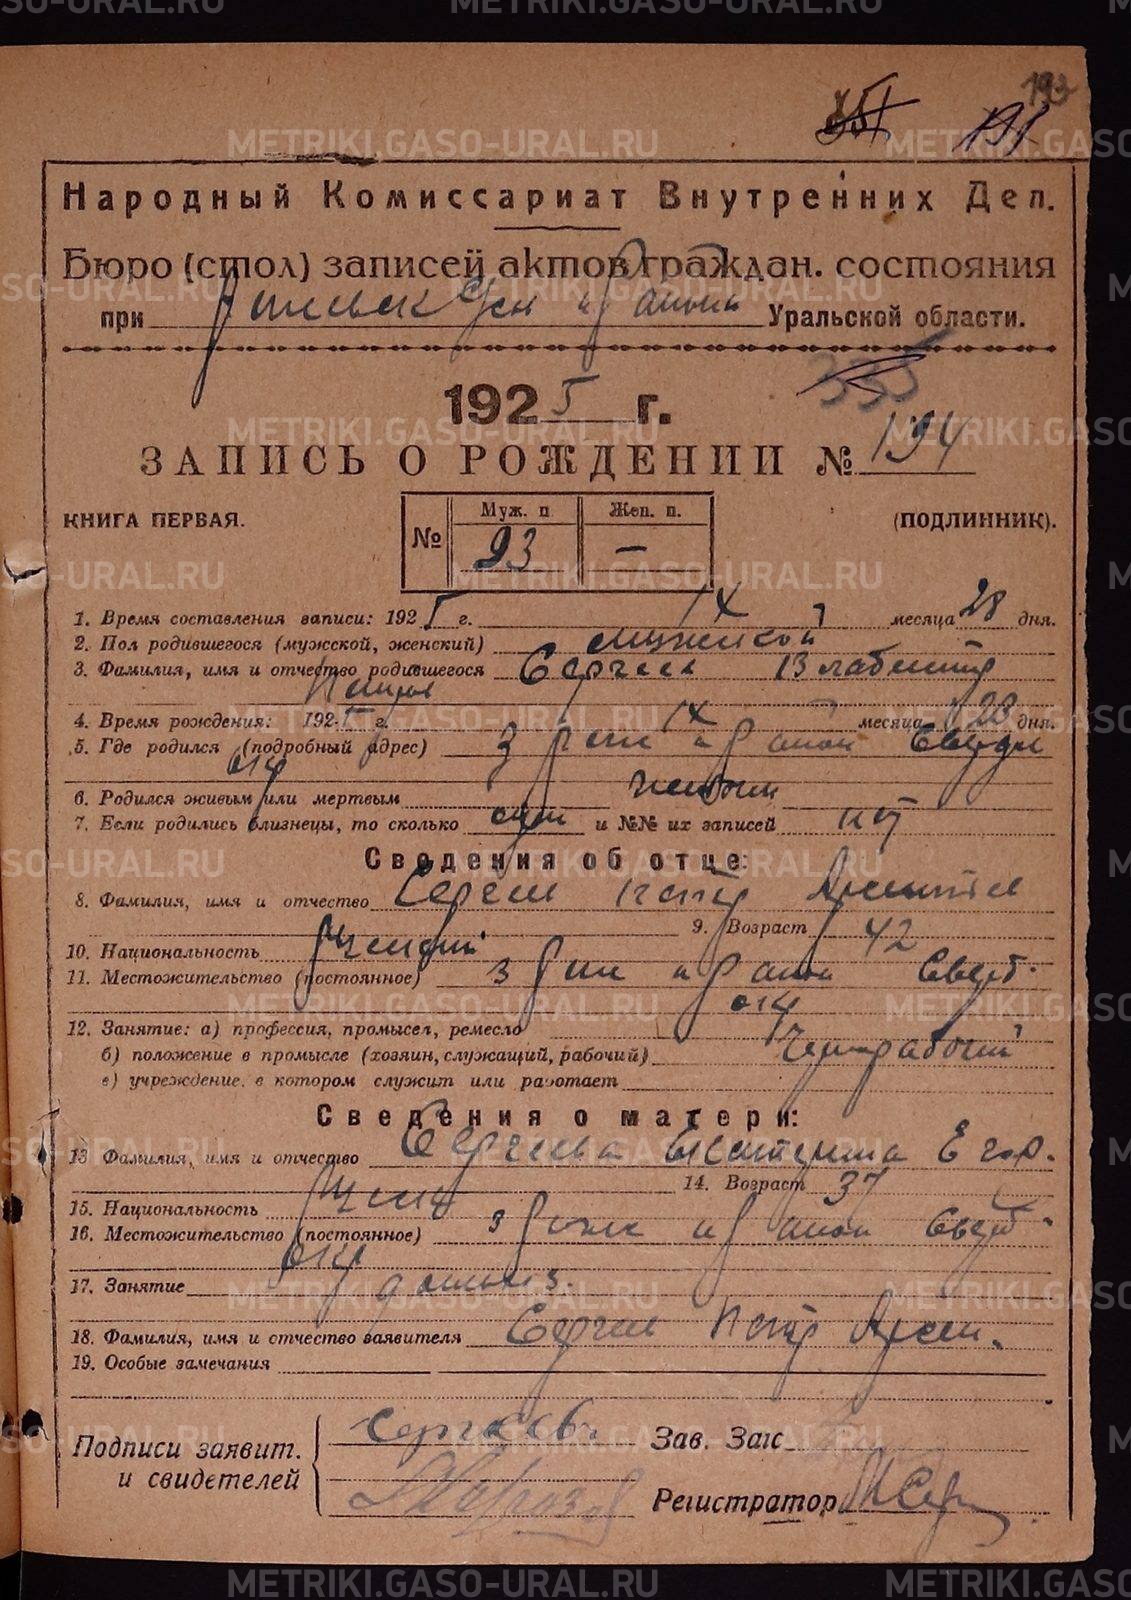 193
Народный Комиссариат Внутренних Дел.
Бюро (стол) записей актов граждан. состояния
при Уральской области.
335
1925 г.
ЗАПИСЬ О РОЖДЕНИИ № 194
КНИГА ПЕРВАЯ. № Муж. п Жен. п. (ПОДЛИННИК).
93 —
1. Время составления записи: 1925 г. IX месяца 28 дня.
2. Пол родившегося (мужской, женский) мужской
3. Фамилия, имя и отчество родившегося Сергеев
4. Время рождения: 1925 г. IX месяца 20 дня.
5. Где родился (подробный адрес) район Свердл
окр
6. Родился живым или мертвым живым
7. Если родились близнецы, то сколько один и №№ их записей нет
Сведения об отце:
8. Фамилия, имя и отчество Сергеев Петр
9. Возраст 42
10. Национальность Русский
11. Местожительство (постоянное) район Сверд.
окр
12. Занятие: а) профессия, промысел, ремесло
б) положение в промысле (хозяин, служащий, рабочий) Чернорабочий
в) учреждение, в котором служит или работает
Сведения о матери:
13 Фамилия, имя и отчество Сергеева Екатерина Егор.
14. Возраст 37
15. Национальность Русск
16. Местожительство (постоянное) район Сверд.
окр
17. Занятие домохоз.
18. Фамилия, имя и отчество заявителя Сергеев Петр Арсен.
19. Особые замечания
Подписи заявит. и свидетелей Сергеев. Зав. Загс
Регистратор
METRIKI.GASO-URAL.RU